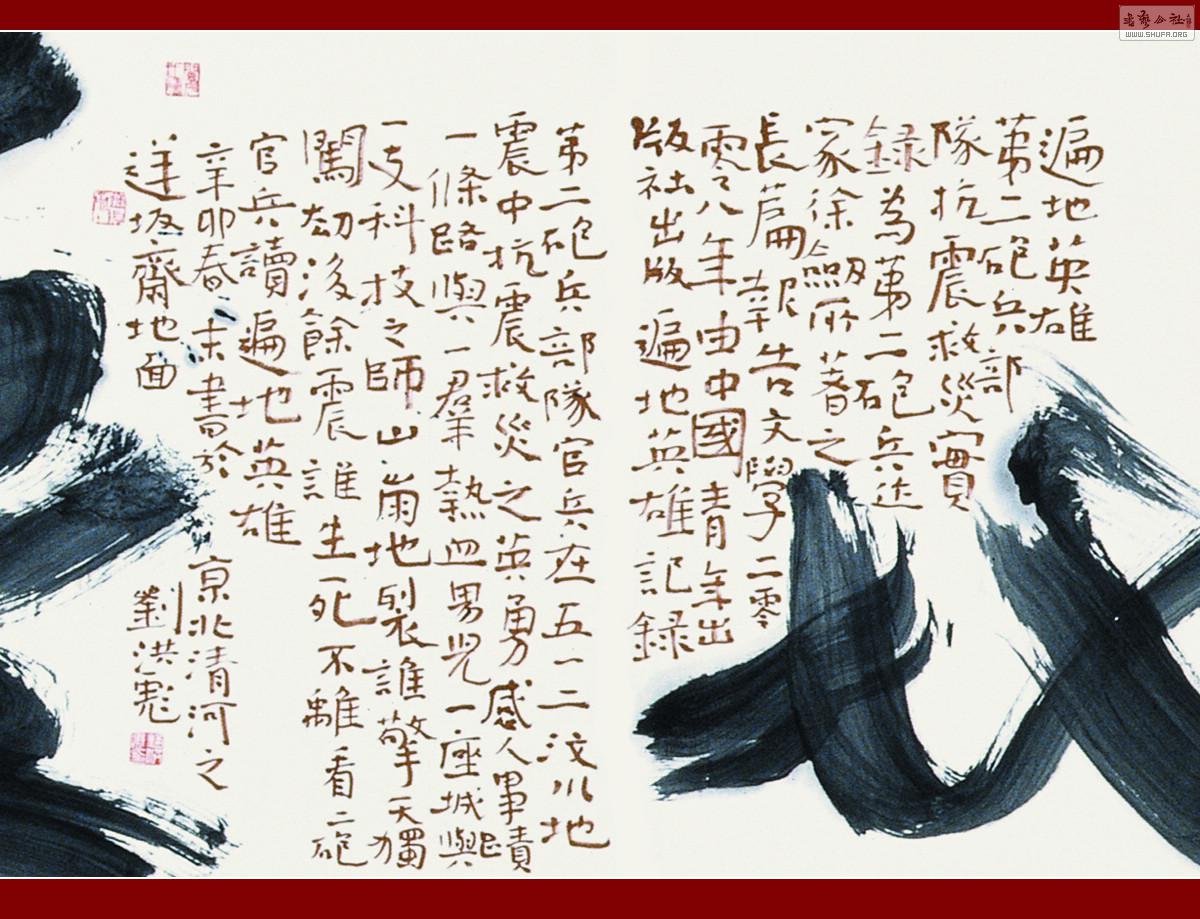 遍地英雄
第二砲兵部
隊抗震救災實
録為第二砲兵作
家徐劍所著之
長篇報告文學二零
零八年由中國青年出
版社出版遍地英雄記録
第二砲兵部隊官兵在五一二汶川地
震中抗震救災之英勇感人事蹟
一條路與一羣熱血男兒一座城與
一支科技之師山崩地裂誰擎天獨
闖劫後餘震誰生死不離看二砲
官兵讀遍地英雄
辛卯春末書於京北清河之
齋地面劉洪彪
WWW.SHUFA.ORG